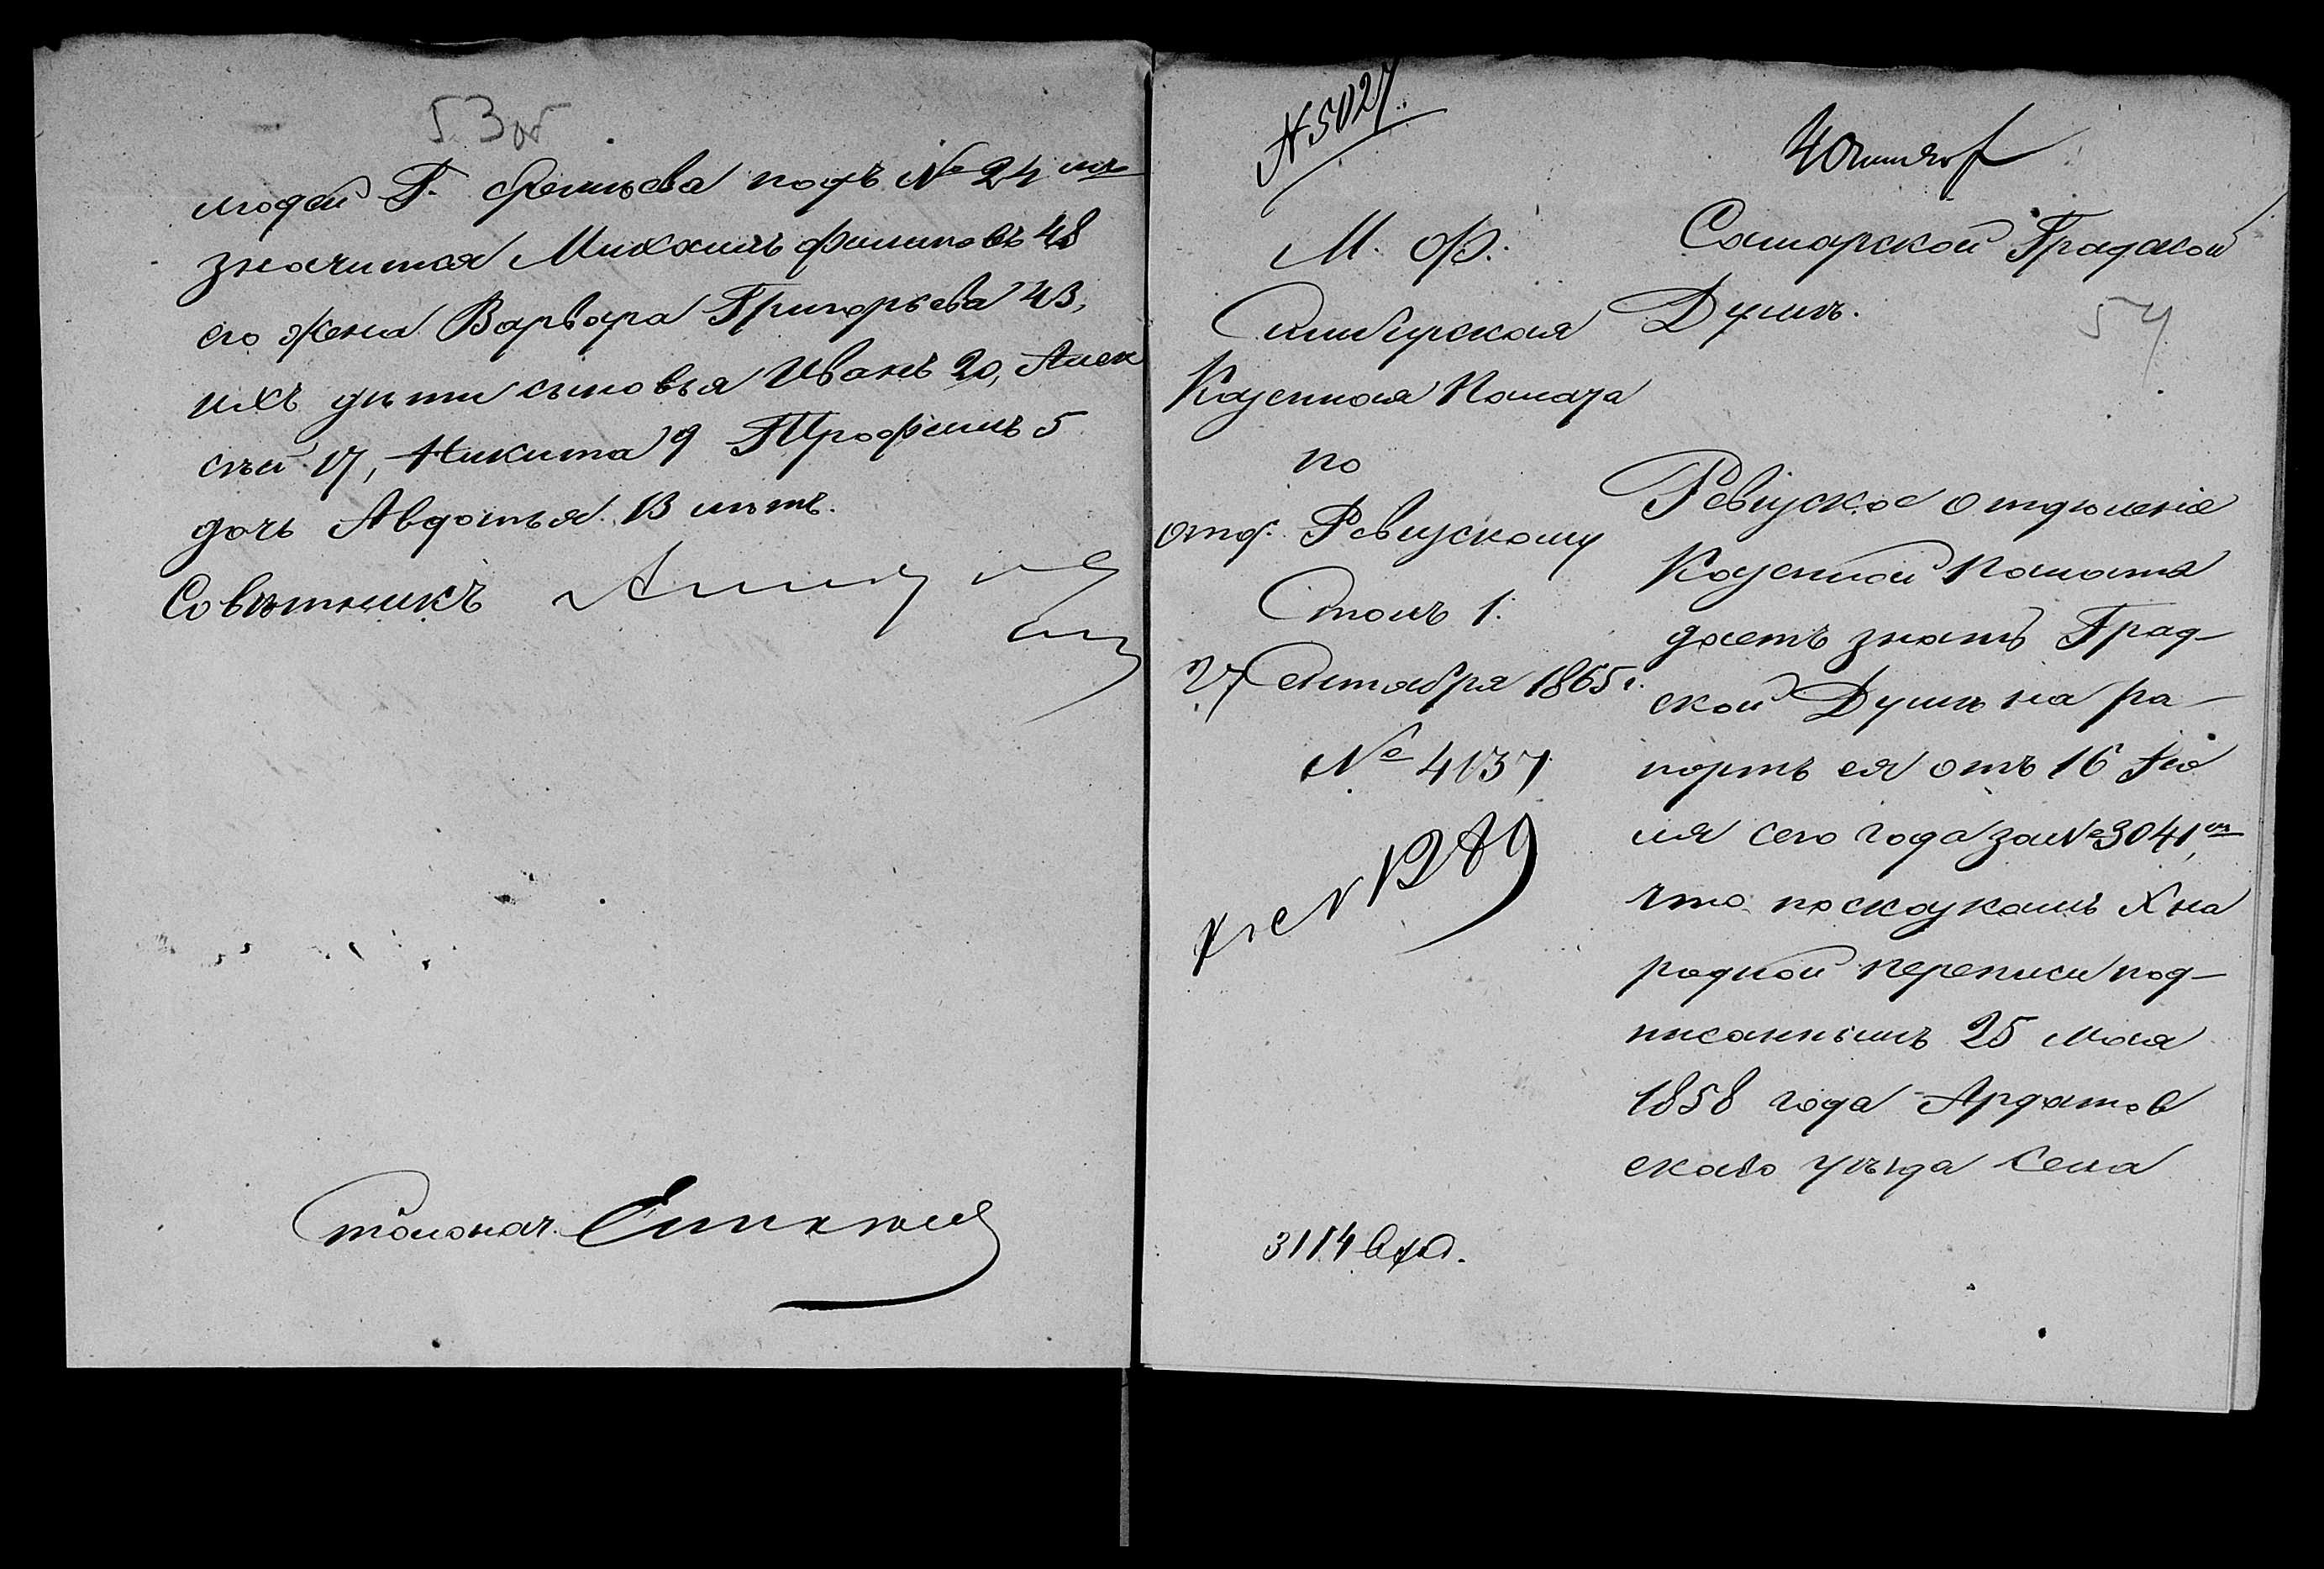 53 об
людей Г. под № 24 мъ
значится Михаилъ Филиповъ 48
его жена Варвара Григорьева 43,
ихъ дѣти сыновья Иванъ 20, Алек
сѣй 17, Никита 9 Трофимъ 5
дочь Авдотья 13 лѣтъ.
Совѣтникъ
Столонач.
№ 5027
М. Ф.
Симбирская
Казенная Палата
по
отд. Ревизскому
Столъ 1.
27 Сентября 1865 г.
№ 4137
1289
3114 вхд.
4 Октября
Самарской Градской
Думѣ.
54
Ревизское отдѣленіе
Казенной Палаты
даетъ знать Град-
ской Думѣ на ра-
портъ ея отъ 16 Iю
ля сего года за № 3041,
что по сказкамъ X на
родной переписи под-
писаннымъ 25 Мая
1858 года Ардатов
скаго уѣзда села